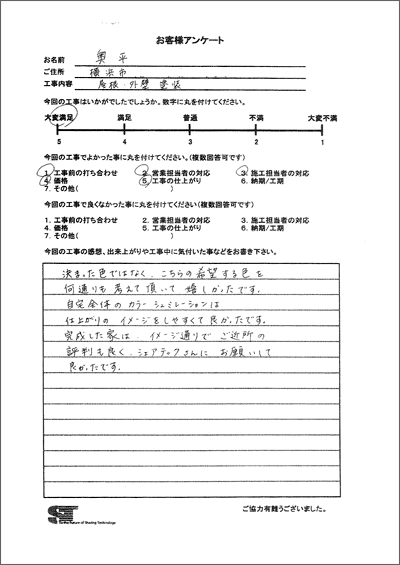 お客様アンケート
お名前 奥 平
ご住所 横浜市
工事内容 屋根・外壁 塗装
今回の工事はいかがでしたでしょうか。数字に丸を付けてください。
大変満足 満足 普通 不満 大変不満
5 4 3 2 1
今回の工事でよかった事に丸を付けてください。(複数回答可です)
1. 工事前の打ち合わせ 2. 営業担当者の対応 3. 施工担当者の対応
4. 価格 5. 工事の仕上がり 6. 納期/工期
7. その他( )
今回の工事で良くなかった事に丸を付けてください(複数回答可です)
1. 工事前の打ち合わせ 2. 営業担当者の対応 3. 施工担当者の対応
4. 価格 5. 工事の仕上がり 6. 納期/工期
7. その他( )
今回の工事の感想、出来上がりや工事中に気付いた事などをお書き下さい。
決まった色ではなく、こちらの希望する色を
何通りも考えて頂いて嬉しかったです。
自宅全体のカラーシュミレーションは
仕上がりのイメージをしやすくて良かったです。
完成した家は、イメージ通りでご近所の
評判も良く、シェアテックさんにお願いして
良かったです。
For the Future of Sharing Technology
ご協力有難うございました。